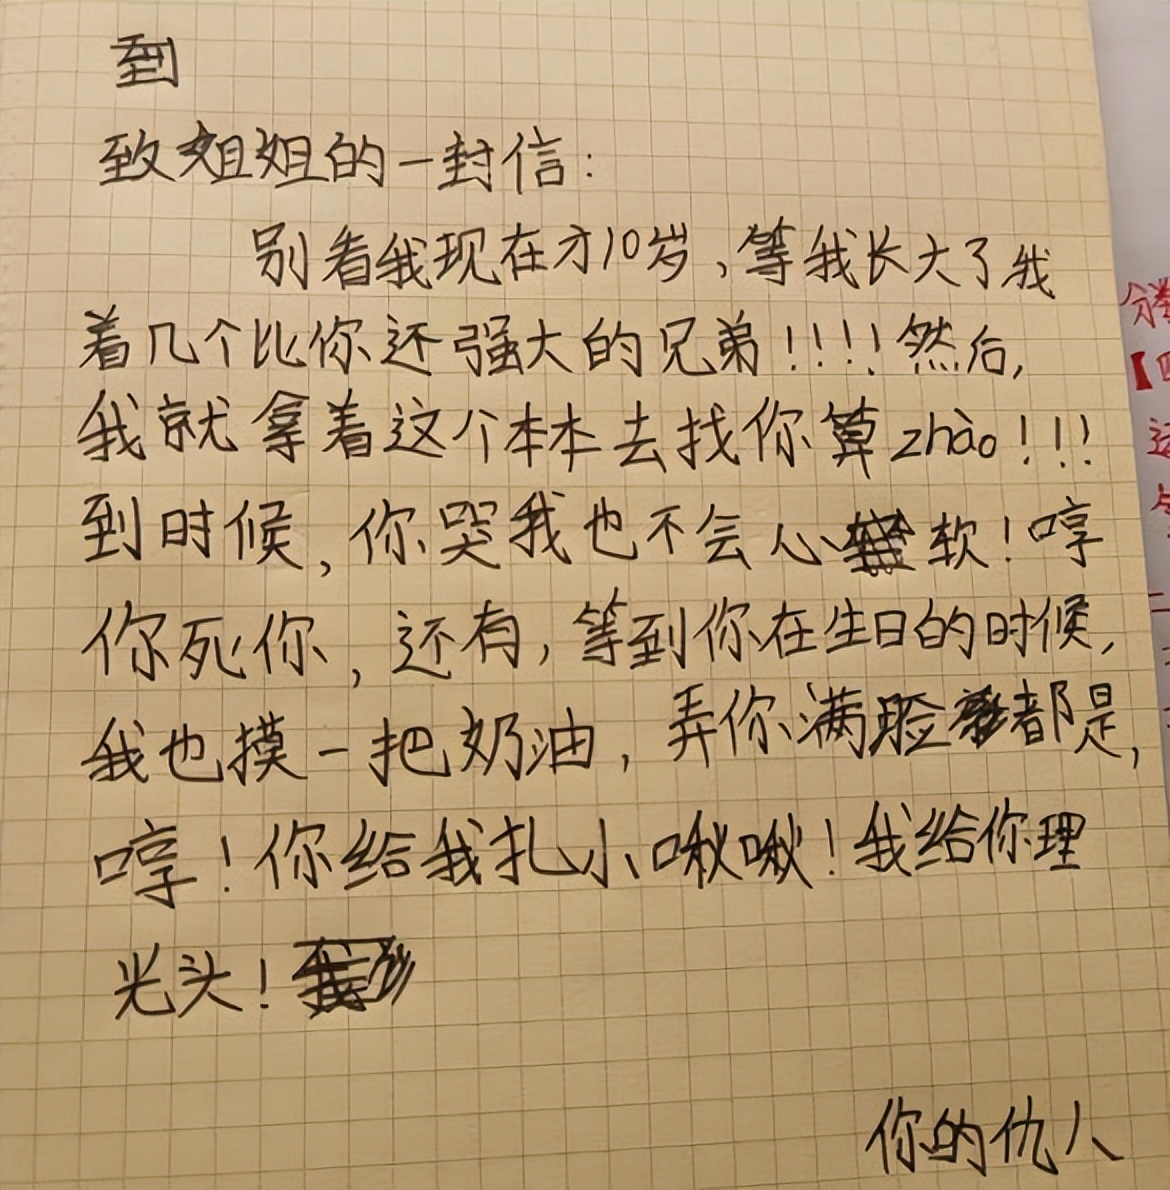 到
致姐姐的一封信：
别看我现在才10岁，等我长大了我
着几个比你还强大的兄弟！！！！然后，
我就拿着这个本本去找你算zhào！！！
到时候，你哭我也不会心软！哼
你死你，还有，等到你在生日的时候，
我也摸一把奶油，弄你满脸都是，
哼！你给我扎小啾啾！我给你理
光头！
你的仇人
分数
【